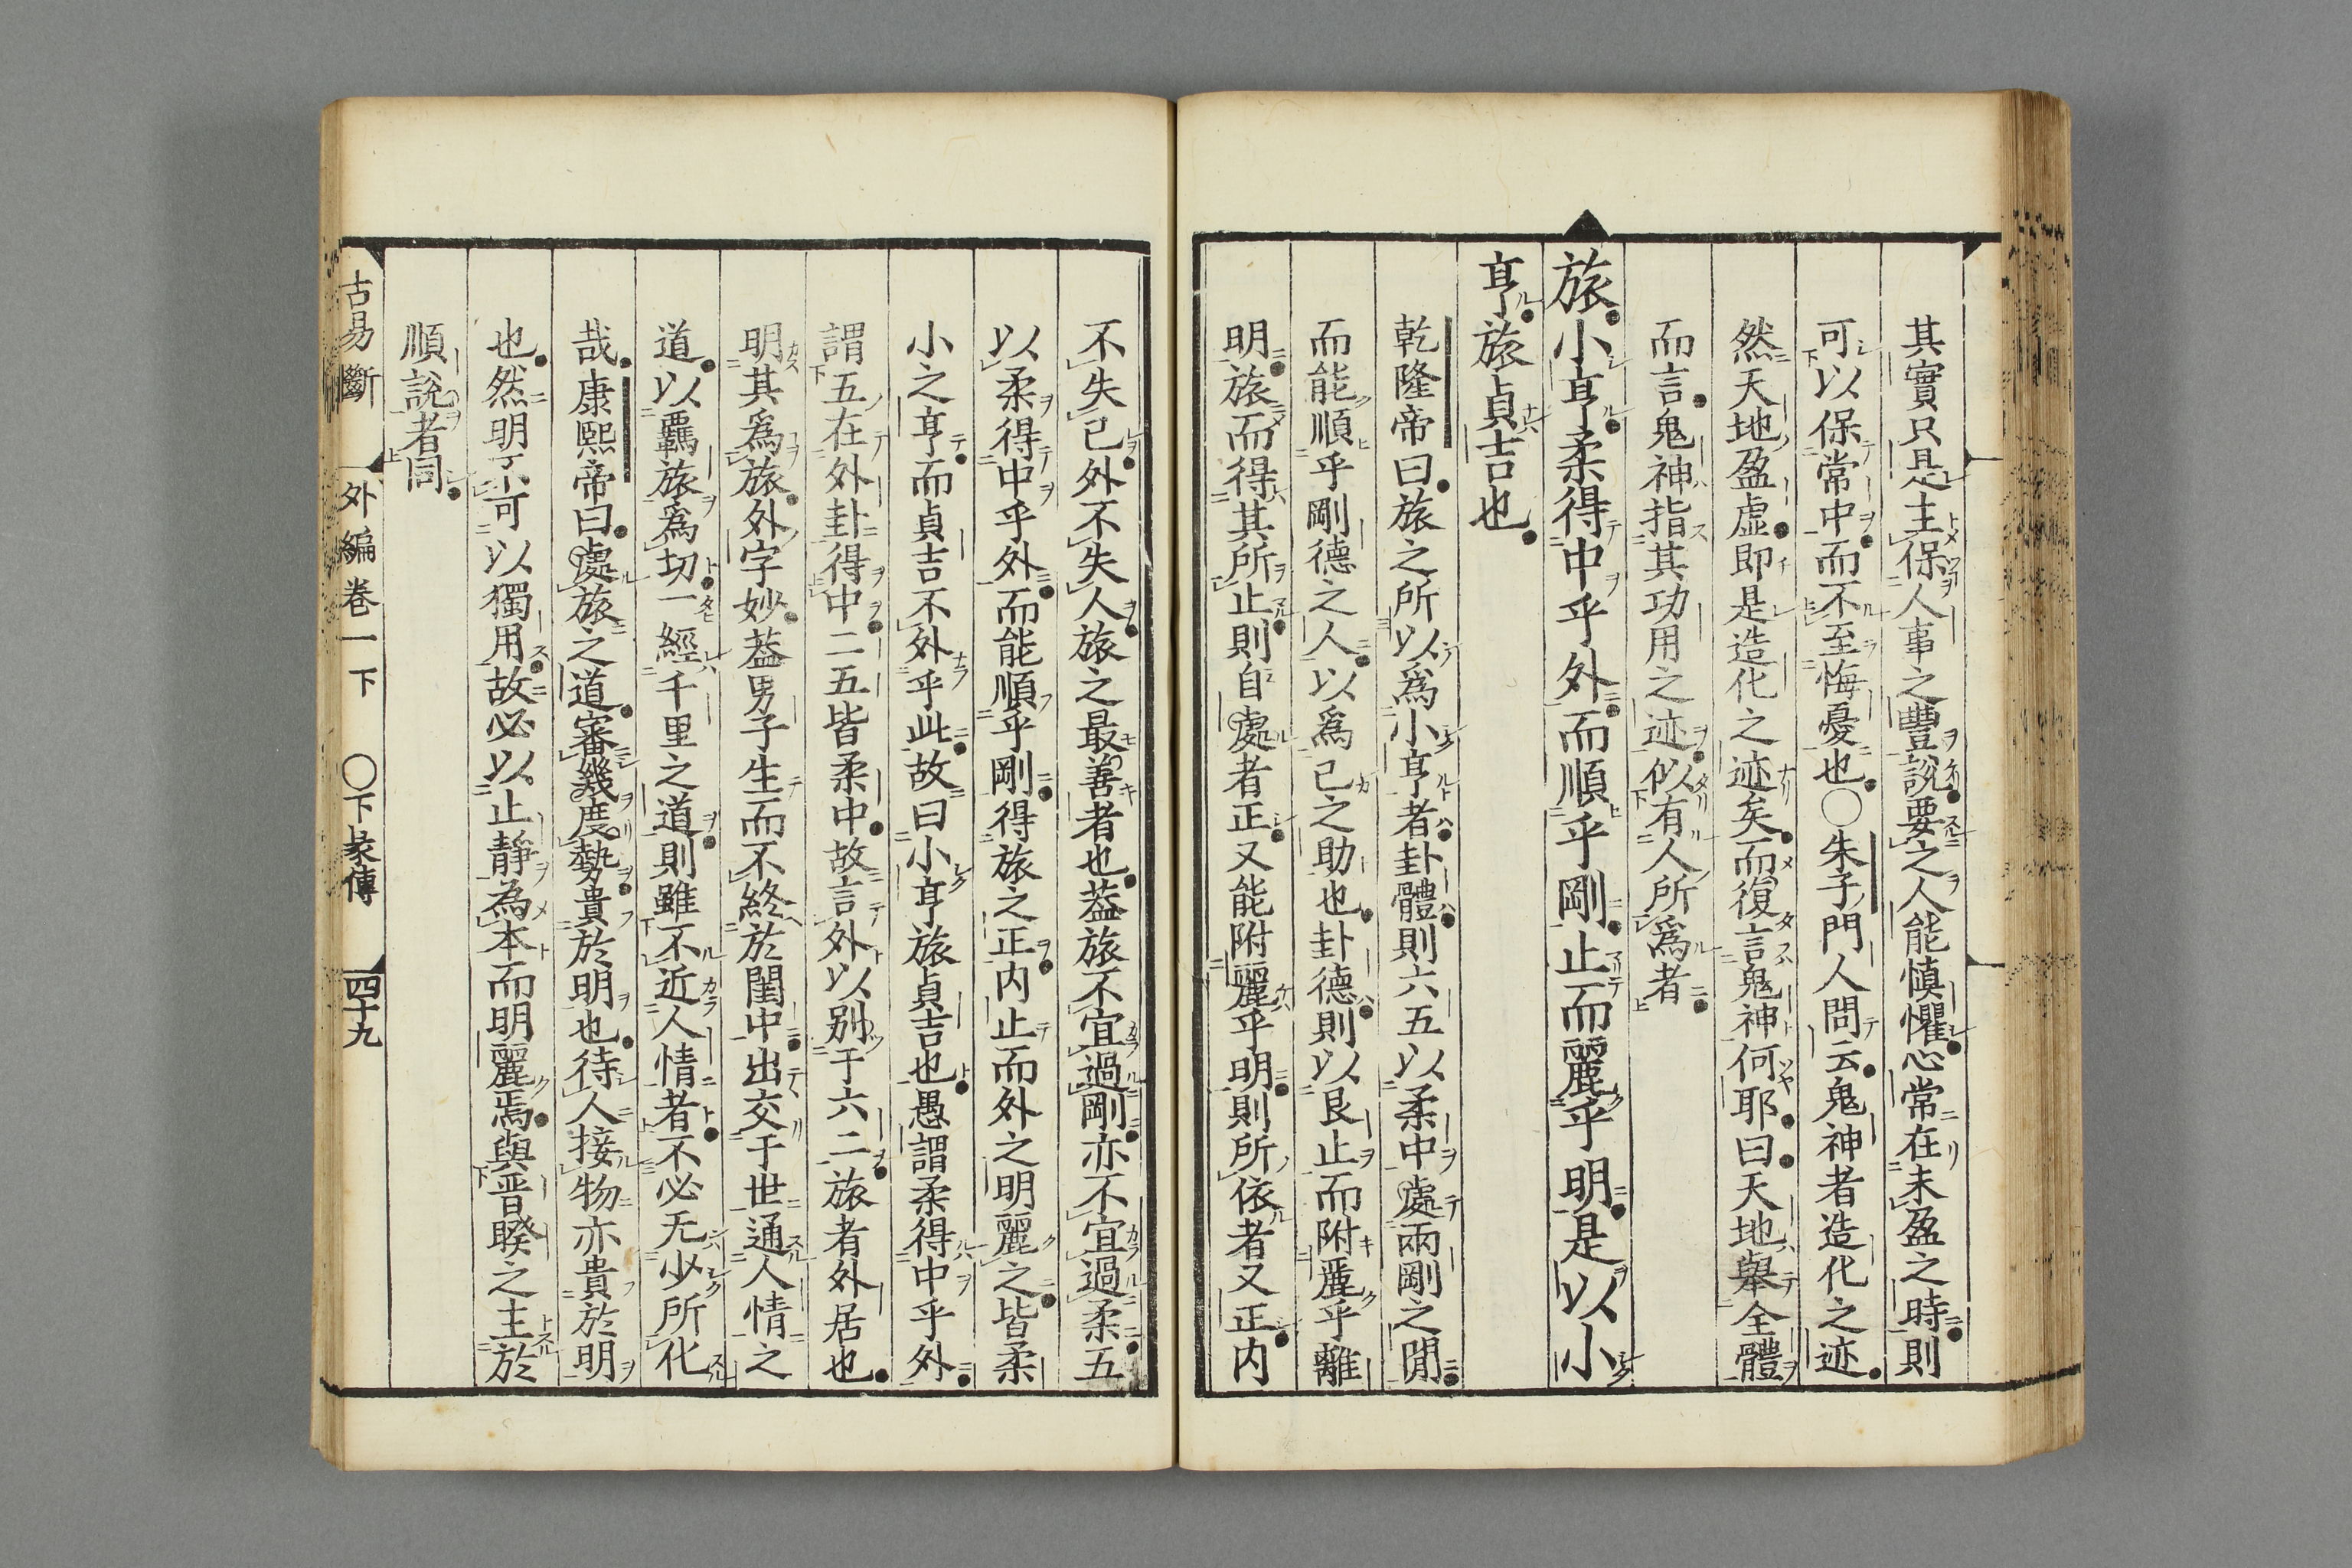 其實只是主保人事之豐說要之人能愼懼心常在未盈之時則
可以保常中而不至悔憂也〇朱子門人問云鬼神者造化之迹
然天地盈虛即是造化之迹矣而復言鬼神何耶曰天地舉全體
而言鬼神指其功用之迹似有人所爲者
旅小亨柔得中乎外而順乎剛止而麗乎明是以小
亨旅貞吉也
乾隆帝曰旅之所以爲小亨者卦體則六五以柔中處兩剛之閒
而能順乎剛德之人以爲己之助也卦德則以艮止而附麗乎離
明旅而得其所止則自處者正又能附麗乎明則所依者又正内
不失己外不失人旅之最善者也葢旅不宜過剛亦不宜過柔五
以柔得中乎外而能順乎剛得旅之正内止而外之明麗之皆柔
小之亨而貞吉不外乎此故曰小亨旅貞吉也愚謂柔得中乎外
謂五在外卦得中二五皆柔中故言外以别于六二旅者外居也
明其爲旅外字妙葢男子生而不終於閨中出交于世通人情之
道以羈旅爲切一經千里之道則雖不近人情者不必无少所化
哉康熙帝曰處旅之道審幾度勢貴於明也待人接物亦貴於明
也然明不可以獨用故必以止靜為本而明麗焉與晋睽之主於
順說者同
古易斷 外編卷一下 〇下彖傳 四十九